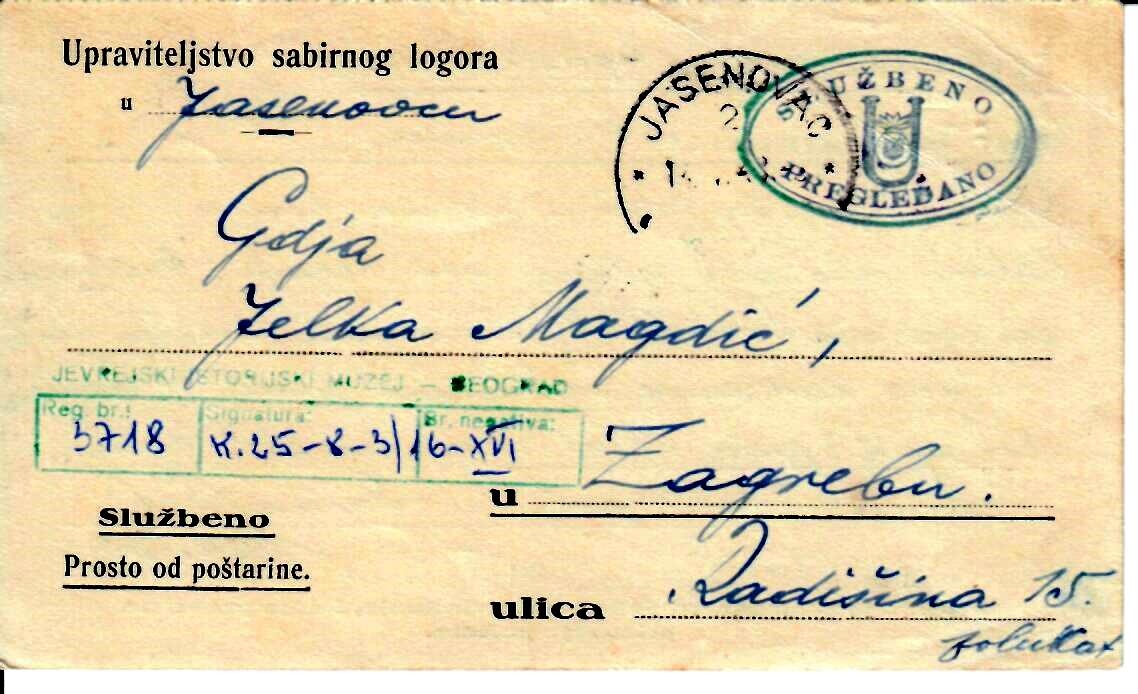 Upraviteljstvo sabirnog logora
u Jasenovcu
JASENOVAC
SLUŽBENO
U
PREGLEDANO
Gdja
Jelka Magdić,
JEVREJSKI ISTORIJSKI MUZEJ – BEOGRAD
Reg. br.: Signatura: Br. negativa:
3718 K.25-8-3/16-XVI
u Zagrebu.
Službeno
Prosto od poštarine.
ulica Radišina 15.
polukat